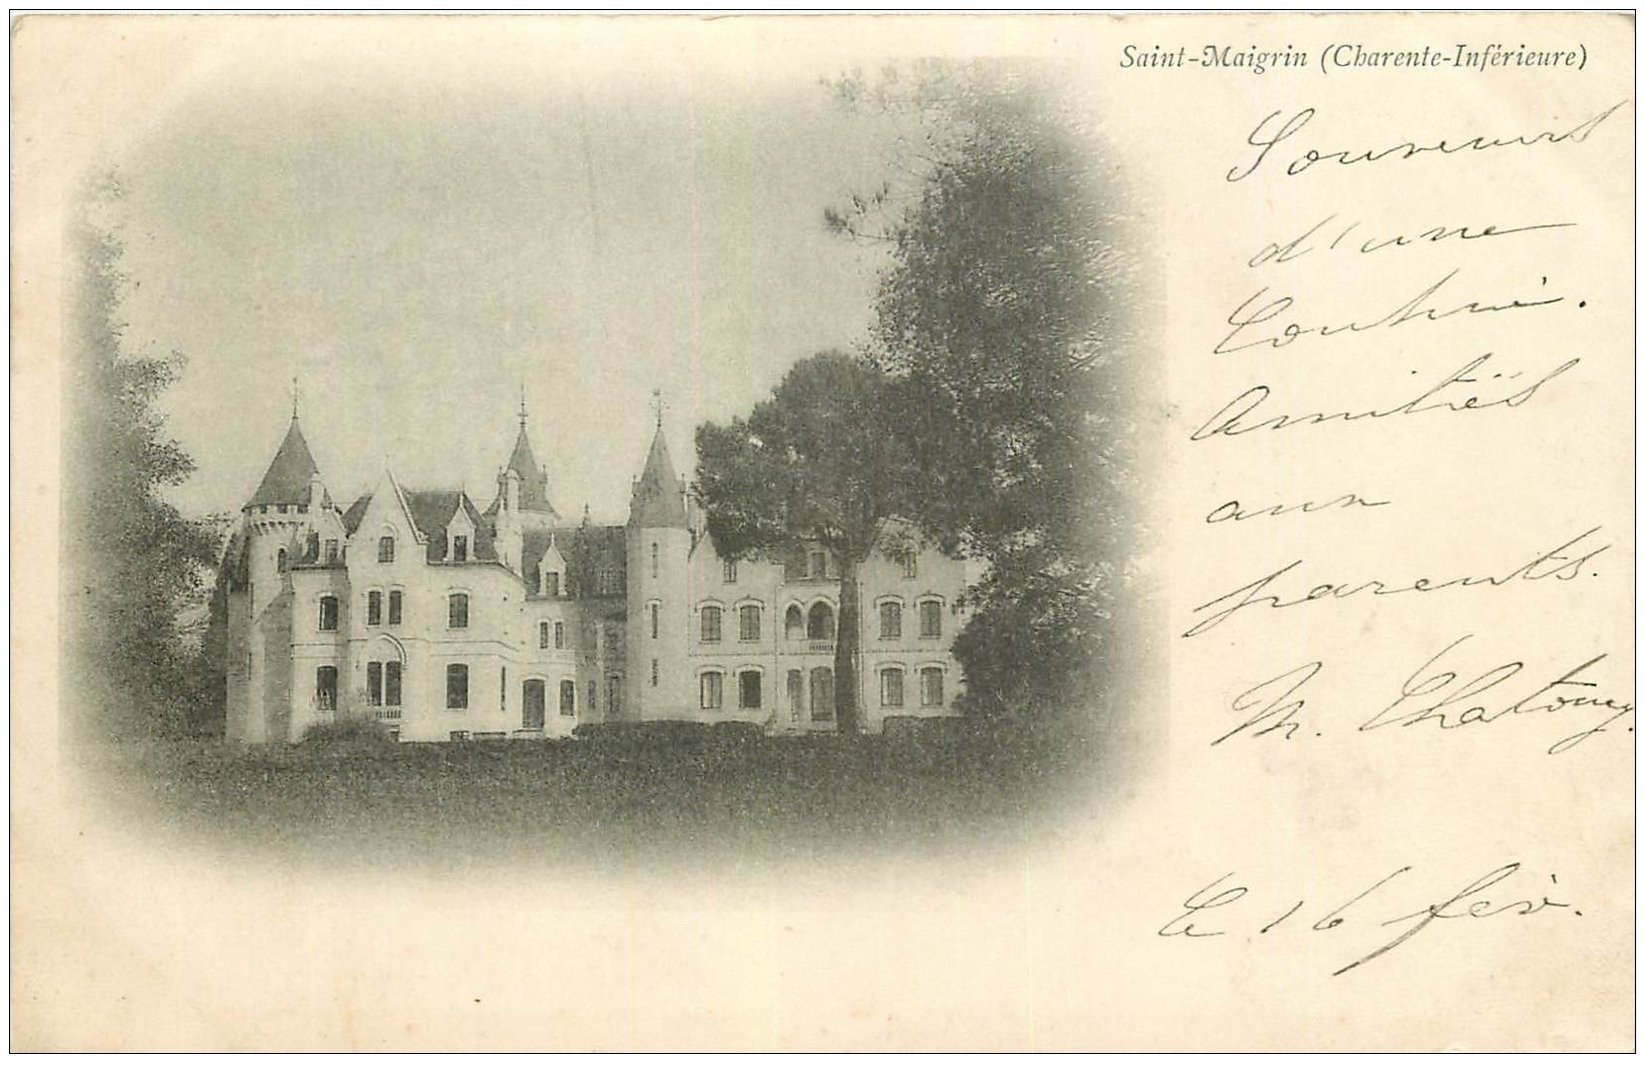 Saint-Maigrin (Charente-Inférieure)
Souvenirs
d'une
Amitiés
aux
parents.
M. Chatony.
Le 16 fév.